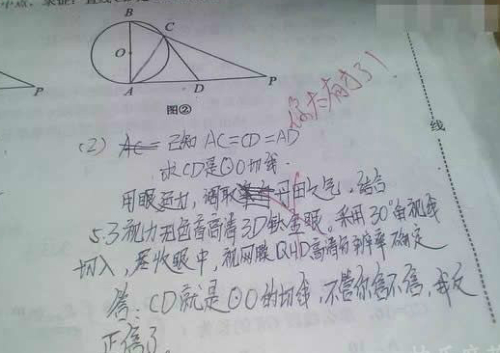 B
C
O
A
D
P
P
图②
你太有才了！
(2) 已知 AC=CD=AD
求CD是⊙O切线.
用眼运力，调取丹田之气，结合
5.3视力无色盲高清3D钛金眼。采用30°角视线
切入，尽收眼中，视网膜QHD高清分辨率确定
答：CD就是⊙O的切线，不管你信不信，我反
正信了。
线